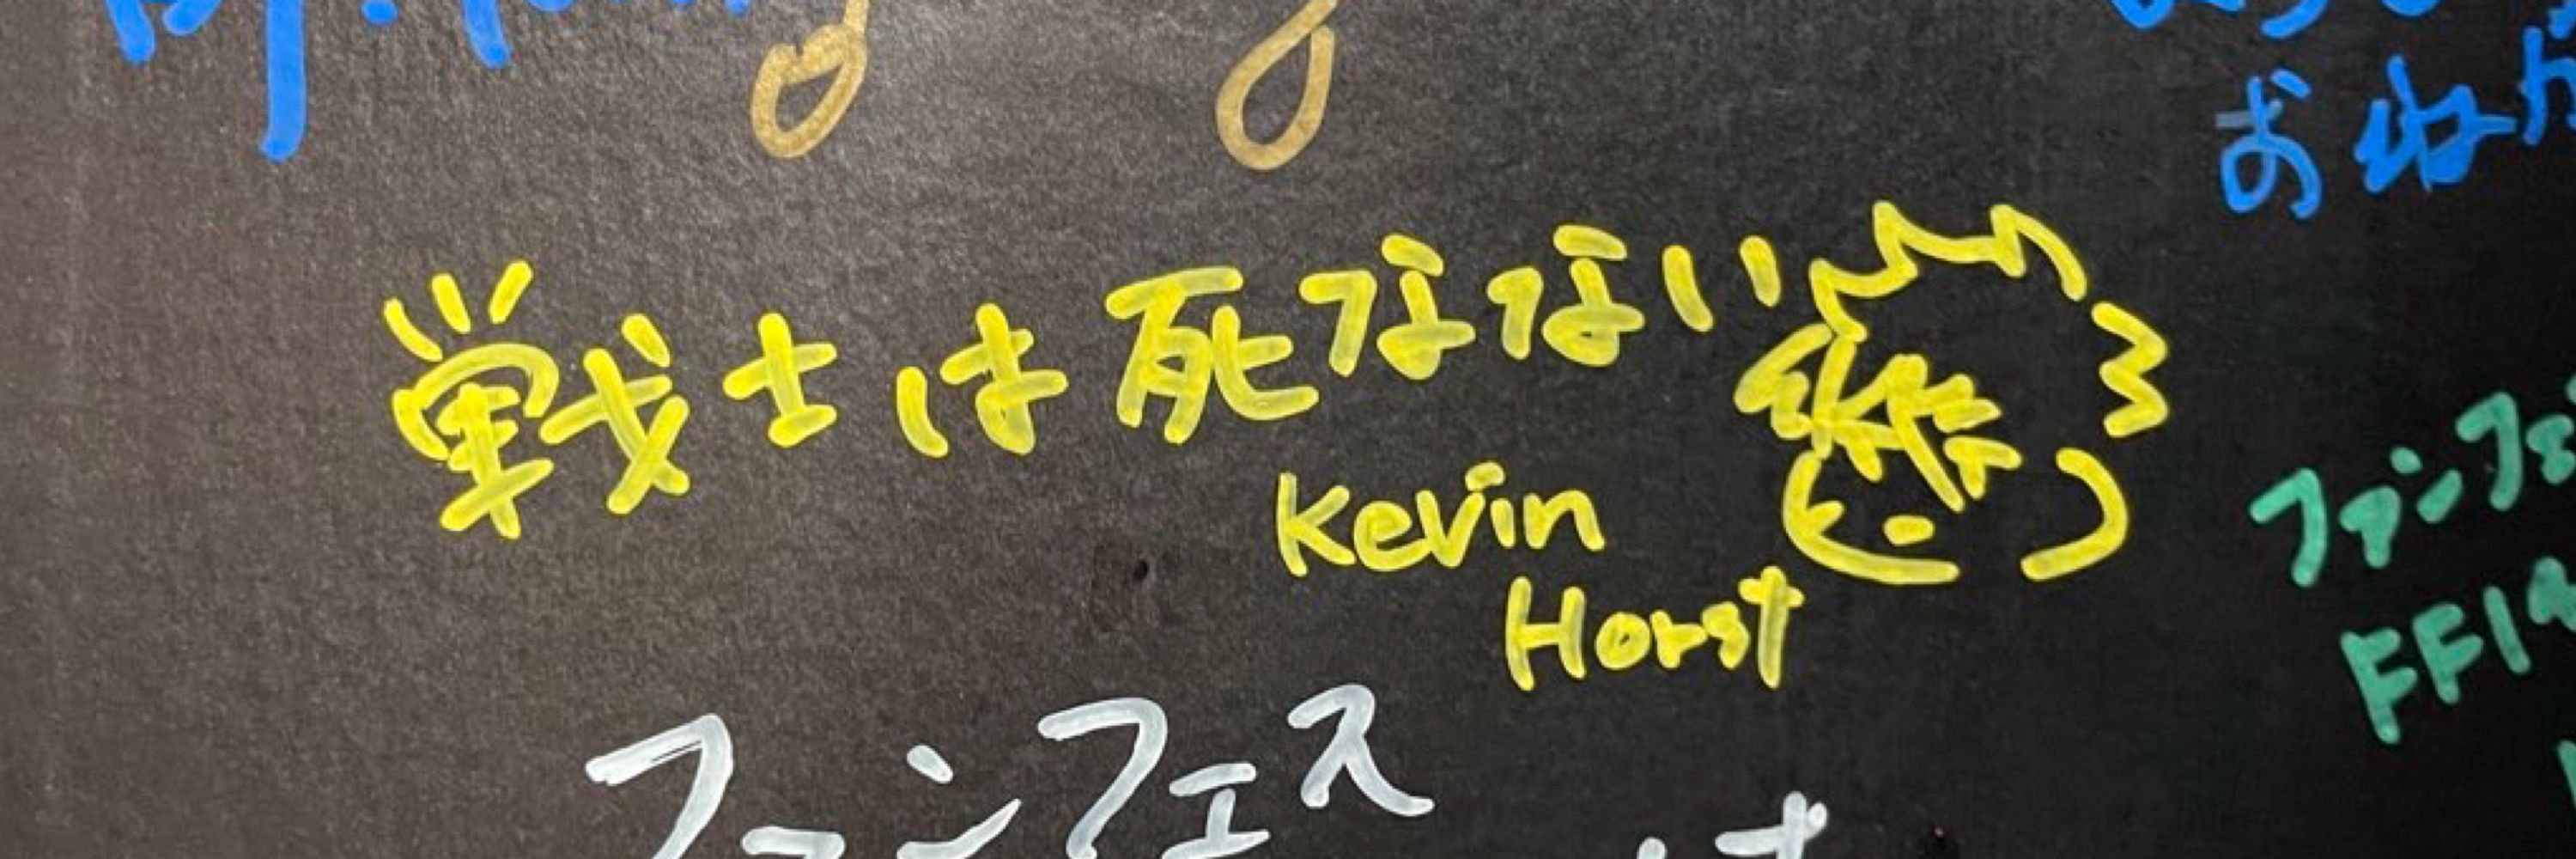 おねが
戦士は死なない
Kevin
Horst
ファンフェ
FF14
ファンフェス